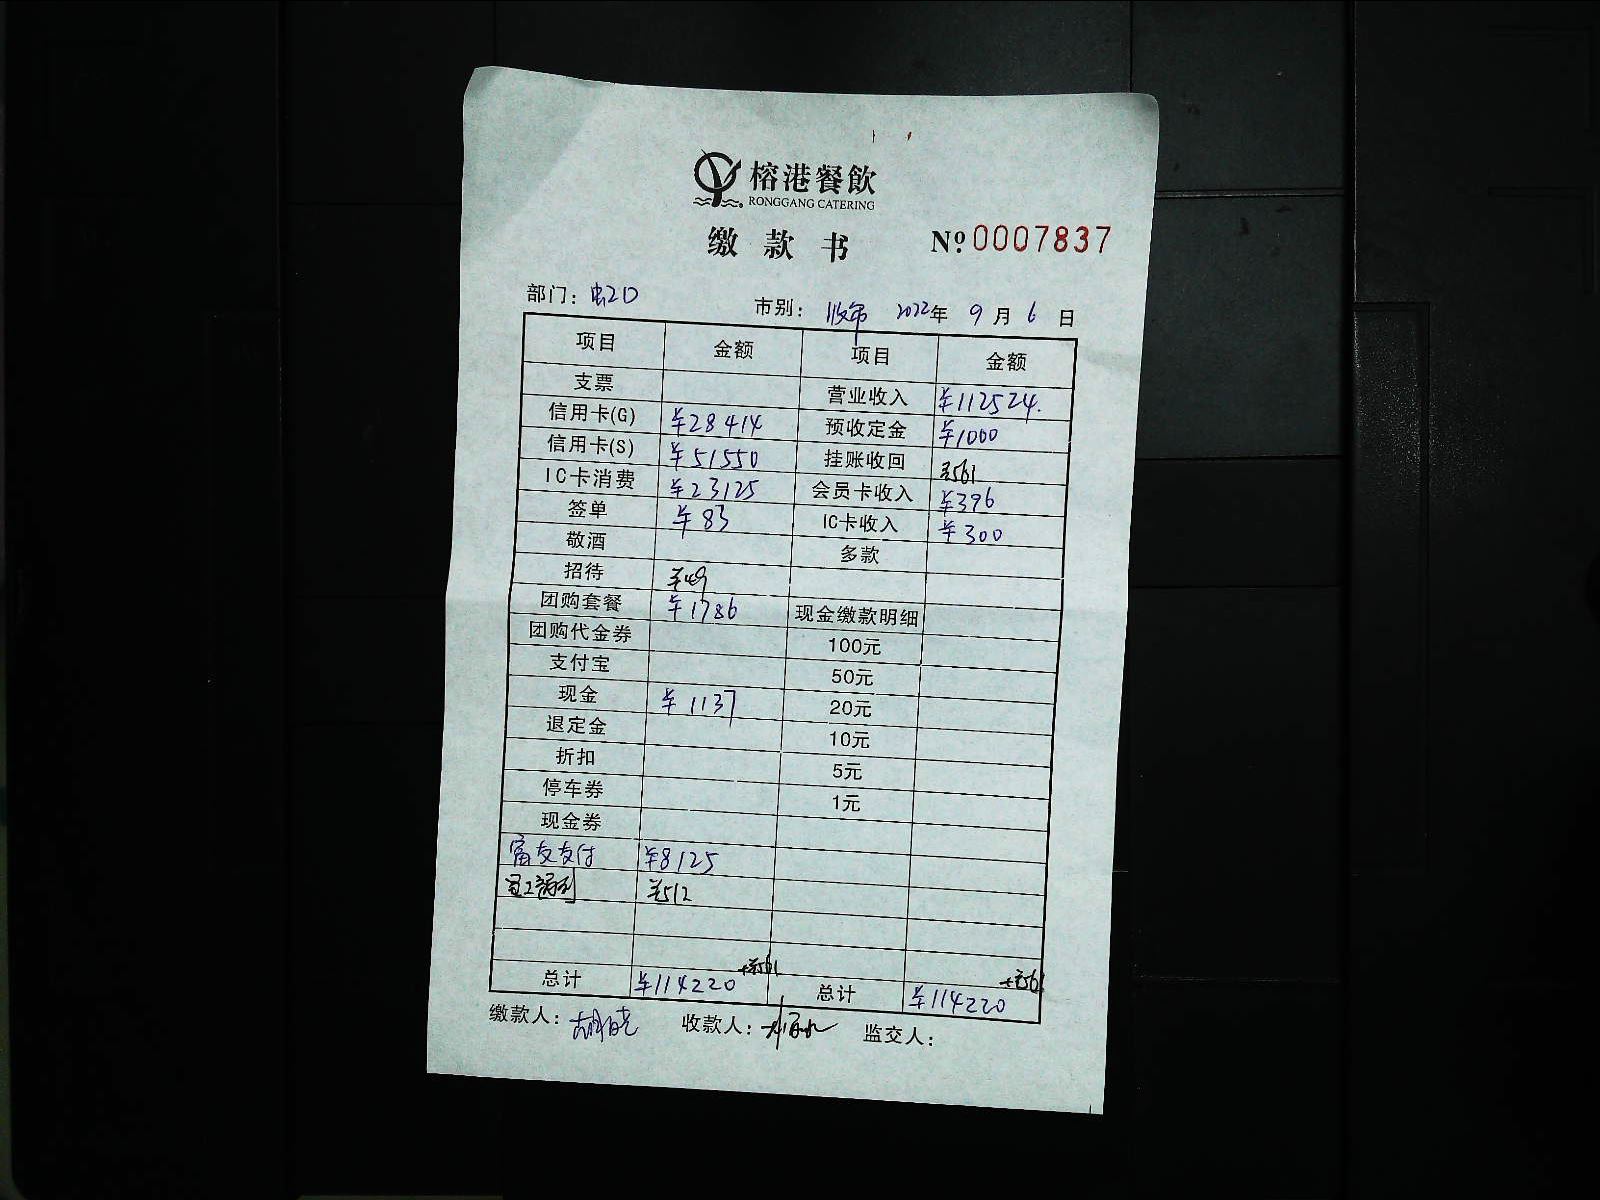 榕港餐飲
RONGGANG CATERING
缴款书 Nº 0007837
部门： 市别： 收市 2022年 9月 6日
项目 金额 项目 金额
支票 营业收入 ¥112524.
信用卡(G) ¥28414 预收定金 ¥1000
信用卡(S) ¥51550 挂账收回 ¥561
IC卡消费 ¥23125 会员卡收入 ¥396
签单 ¥83 IC卡收入 ¥300
敬酒 多款
招待 ¥49
团购套餐 ¥1786 现金缴款明细
团购代金券 100元
支付宝 50元
现金 ¥1137 20元
退定金 10元
折扣 5元
停车券 1元
现金券
富友支付 ¥8125
¥512
+¥561 +¥561
总计 ¥114220 总计 ¥114220
缴款人： 收款人： 监交人：